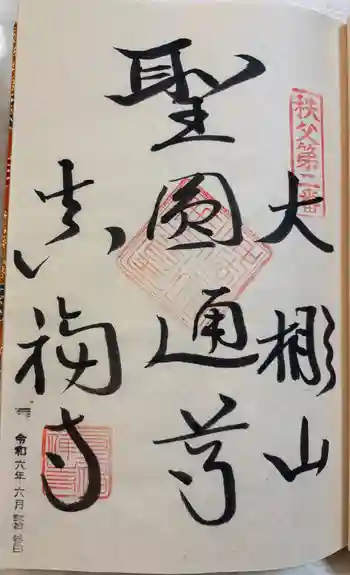 秩父第二番
大棚山
聖圓通尊
真福寺
令和六年六月